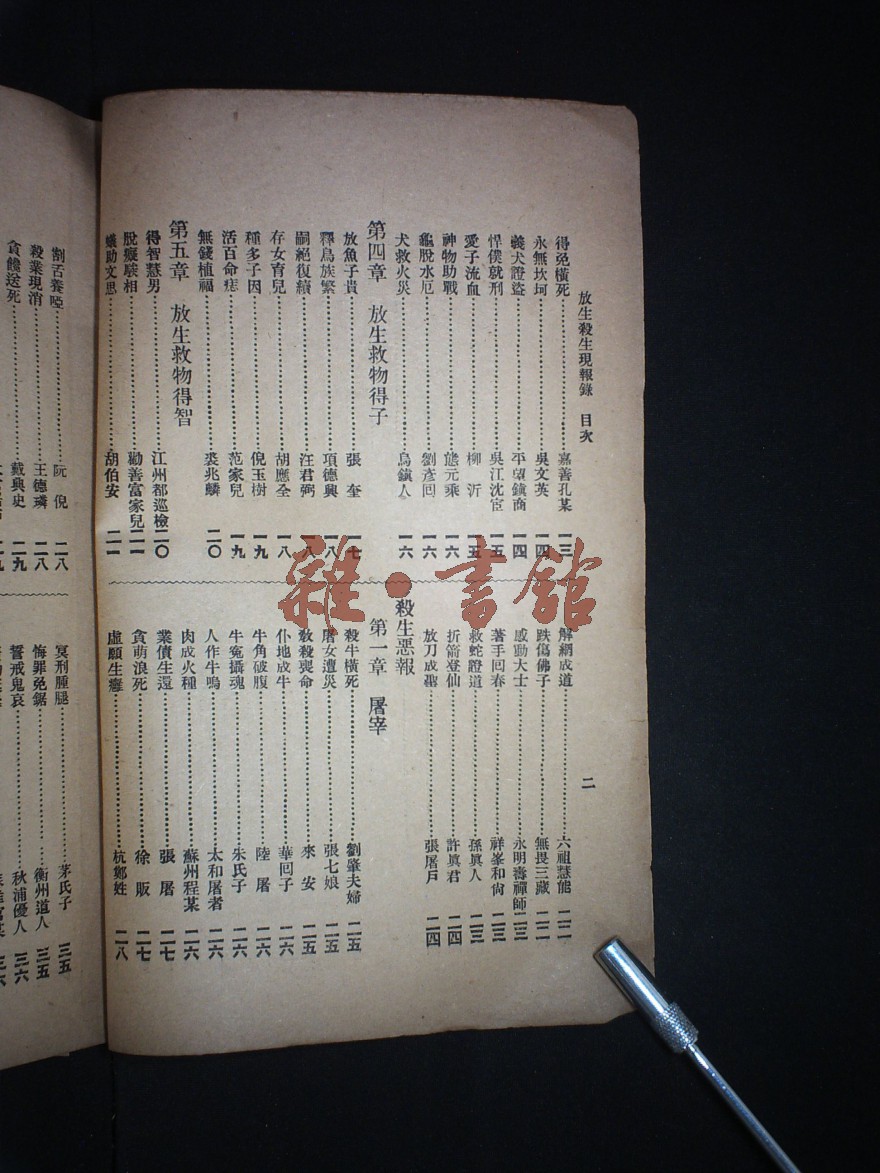 放生殺生現報錄 目次
二
得免橫死 嘉善孔某 一三
永無坎坷 吳文英 一四
義犬證盜 平望鎮商 一四
悍僕就刑 吳江沈宦 一五
愛子流血 柳沂 一五
神物助戰 熊元乘 一六
龜脫水厄 劉彥回 一六
犬救火災 烏鎮人 一六
第四章 放生救物得子
放魚子貴 張奎 一七
釋鳥族繁 項德興 一八
嗣絕復續 汪君弼 一八
存女育兒 胡應全 一八
種多子因 倪玉樹 一九
活百命痣 范家兒 一九
無錢植福 裘兆麟 二〇
第五章 放生救物得智
得智慧男 江州都巡檢 二〇
脫癡騃相 勸善富家兒 二一
蟻助文思 胡伯安 二一
解網成道 六祖慧能 二二
跌傷佛子 無畏三藏 二二
感動大士 永明壽禪師 二三
著手回春 祥峯和尙 二三
救蛇證道 孫眞人 二三
折箭登仙 許眞君 二四
放刀成聖 張屠戶 二四
殺生惡報
第一章 屠宰
殺牛橫死 劉肇夫婦 二五
屠女遭災 張七娘 二五
敎殺喪命 來安 二五
仆地成牛 華回子 二六
牛角破腹 陸屠 二六
牛冤攝魂 朱氏子 二六
人作牛鳴 太和屠者 二六
肉成火種 蘇州程某 二六
業債生還 張屠 二七
貪萌浪死 徐販 二七
虛願生癰 杭鄭姓 二八
割舌養啞 阮倪 二八
殺業現消 王德璘 二八
貪饞送死 戴典史 二九
冥刑腫腿 茅氏子 三五
悔罪免鋸 衡州道人 三五
誓戒鬼哀 秋浦優人 三六
雜·書館